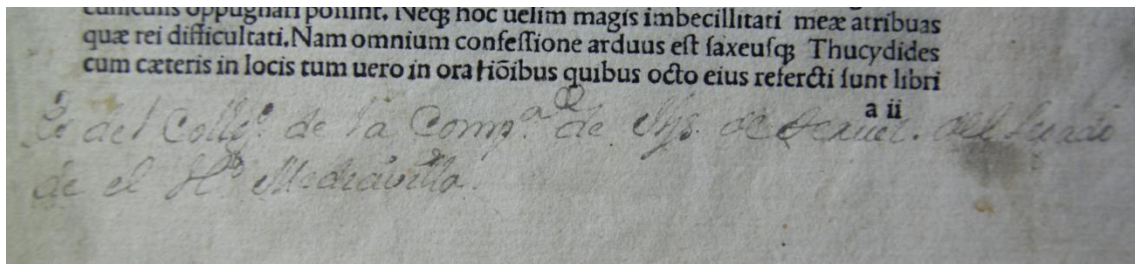 cuniculis oppugnari possint. Neqꝫ hoc uelim magis imbecillitati meæ atribuas
quæ rei difficultati. Nam omnium confeſſione arduus eſt ſaxeuſqꝫ Thucydides
cum cæteris in locis tum uero in oratiōibus quibus octo eius referct̄i ſunt libri
a ii
Es del Collgº. de la Compª. de Jhs. de
de el Hº Mediavilla.